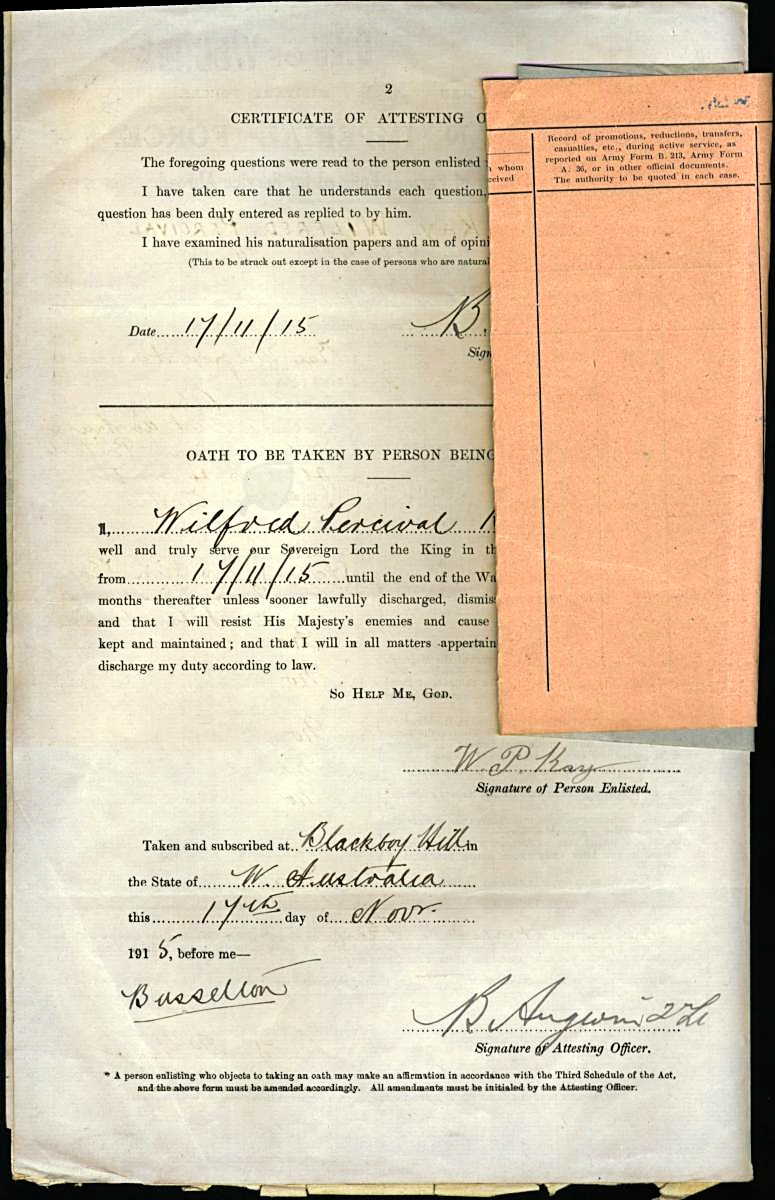 2
CERTIFICATE OF ATTESTING O
The foregoing questions were read to the person enlisted
I have taken care that he understands each question,
question has been duly entered as replied to by him.
I have examined his naturalisation papers and am of opini
(This to be struck out except in the case of persons who are natural
Date 17/11/15 B.
Sign
whom
ceived
Record of promotions, reductions, transfers,
casualties, etc., during active service, as
reported on Army Form B. 213, Army Form
A. 36, or in other official documents.
The authority to be quoted in each case.
OATH TO BE TAKEN BY PERSON BEING
I, Wilfred Percival K
well and truly serve our Sovereign Lord the King in th
from 17/11/15 until the end of the Wa
months thereafter unless sooner lawfully discharged, dismis
and that I will resist His Majesty's enemies and cause
kept and maintained; and that I will in all matters appertain
discharge my duty according to law.
So Help Me, God.
W P. Kay
Signature of Person Enlisted.
Taken and subscribed at Blackboy Hill in
the State of W. Australia
this 17th day of Novr.
1915, before me—
Busselton
B. Angwin 2 Lt
Signature of Attesting Officer.
* A person enlisting who objects to taking an oath may make an affirmation in accordance with the Third Schedule of the Act,
and the above form must be amended accordingly. All amendments must be initialed by the Attesting Officer.